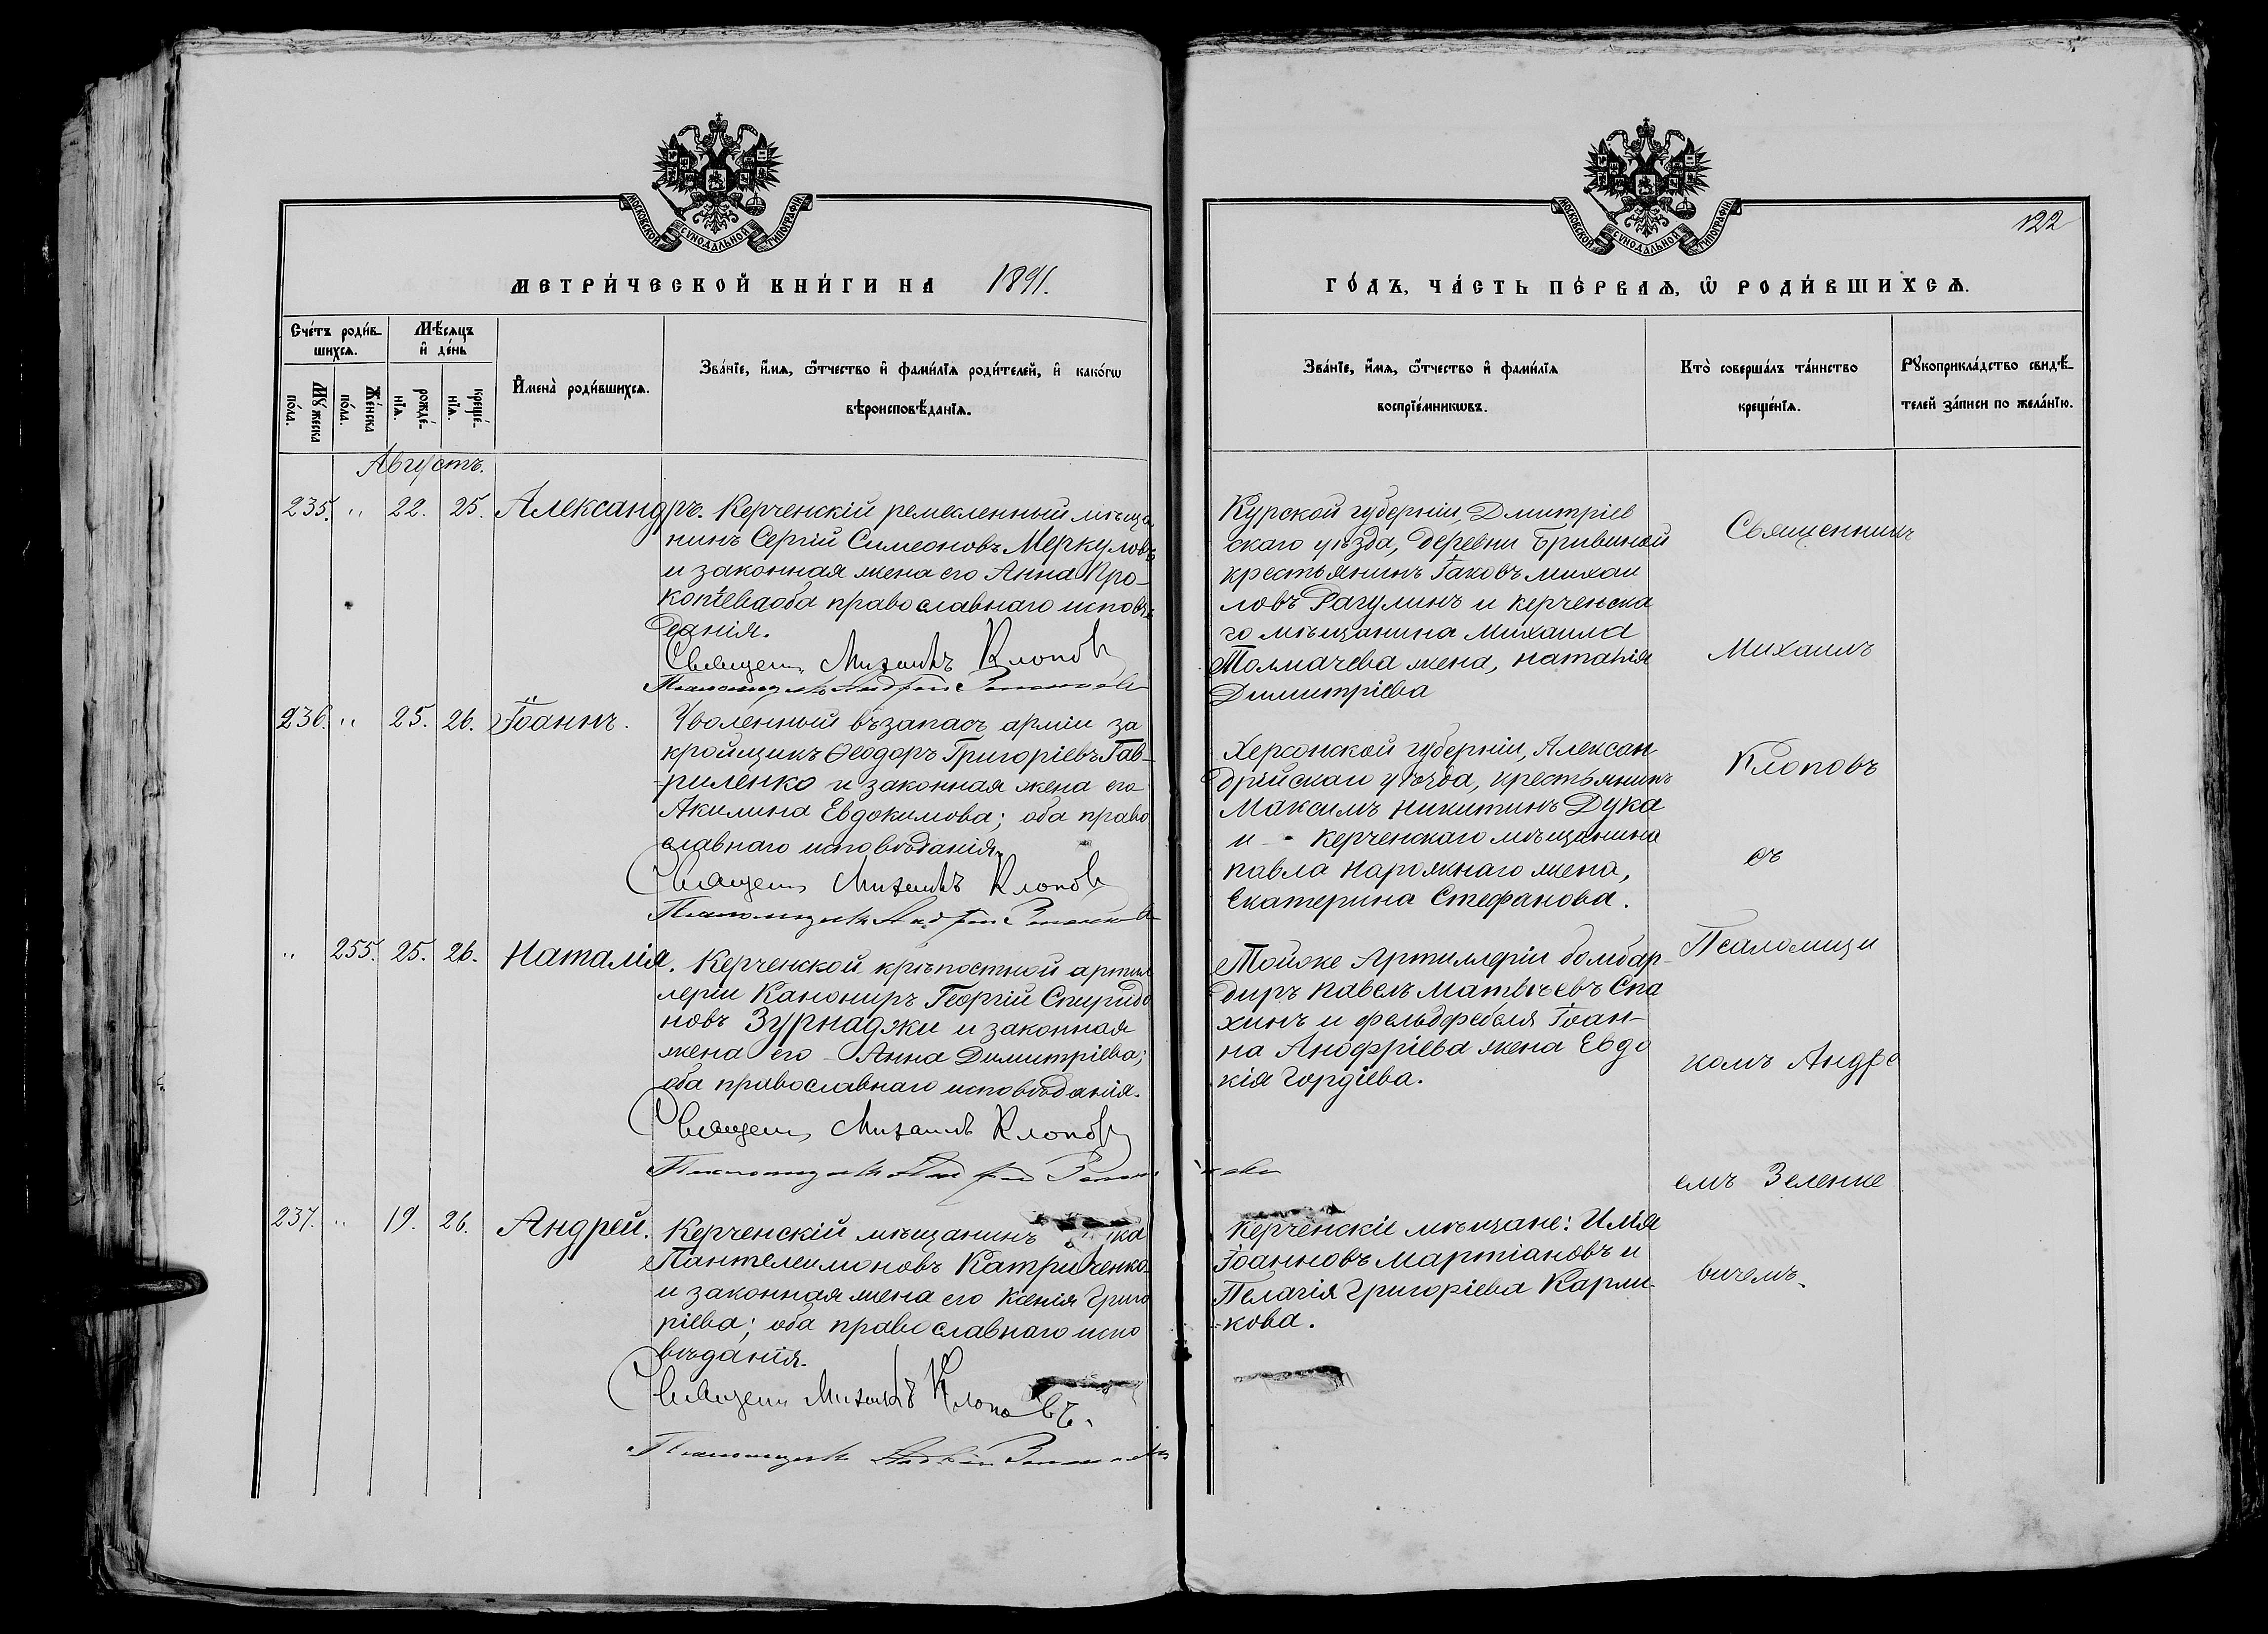 МОСКОВСКОЙ СѴНОДАЛЬНОЙ ТИПОГРАФІИ
МЕТРИ́ЧЕСКОЙ КНИ́ГИ НА 1891.
Сче́тъ роди́в-
шихсѧ.
Мѣ́сяцъ
и҆ де́нь
Мꙋжеска по́ла.
Же́нска по́ла.
рожде́-
нїѧ.
креще́-
нїѧ.
И҆мена̀ роди́вшихсѧ.
Зва́нїе, и҆́мѧ, ѻ҆́тчество и҆ фами́лїѧ роди́телей, и҆ како́гѡ
вѣроисповѣ́данїѧ.
Августъ.
235. " 22. 25. Александръ. Керченскій ремесленный мѣща
нинъ Сергій Симеоновъ Меркуловъ
и законная жена его Анна Про-
копіева оба православнаго исповѣ
данія.
Священ Михаилъ Клоповъ
Псаломщикъ Андрей
236. " 25. 26. Іоаннъ. Уволенный въ запасъ арміи за
кройщикъ Ѳеодоръ Григоріевъ Гав-
риленко и законная жена его
Акилина Евдокимова; оба право
славнаго исповѣданія.
Священ Михаилъ Клоповъ
Псаломщикъ Андрей
" 255. 25. 26. Наталія. Керченской крѣпостной артил
леріи Канониръ Георгій Спиридо
новъ Зурнаджи и законная
жена его - Анна Димитріева;
оба православнаго исповѣданія.
Священ Михаилъ Клоповъ
Псаломщикъ Андрей
237. " 19. 26. Андрей. Керченскій мѣщанинъ
Пантелеимоновъ Катриченко
и законная жена его Ксенія Григо
ріева; оба православнаго испо
вѣданія.
Священ Михаилъ Клоповъ.
Псаломщикъ Андрей
МОСКОВСКОЙ СѴНОДАЛЬНОЙ ТИПОГРАФІИ
122
ГО́ДЪ, ЧА́СТЬ ПЕ́РВАѦ, Ѡ҆ РОДИ́ВШИХСѦ.
Зва́нїе, и҆́мѧ, ѻ҆́тчество и҆ фами́лїѧ
воспрїе́мникѡвъ.
Кто̀ соверша́лъ та́инство
креще́нїѧ.
Рꙋкоприкла́дство свидѣ́-
телей за́писи по жела́нїю.
Курской губерніи, Дмитріев
скаго уѣзда, деревни
крестьянинъ Іаковъ михаи
ловъ Рагулинъ и керченска
го мѣщанина Михаила
Толмачева жена, наталія
Димитріева
Херсонской губерніи, Алексан
дрійскаго уѣзда, крестьянинъ
Максимъ никитинъ Дука
и - керченскаго мѣщанина
павла нарожнаго жена,
Екатерина Стефанова.
Тойже Артиллеріи бомбар-
диръ павелъ матвѣевъ Спа
хинъ и фельдфебеля Іоан-
на Анофріева жена Евдо
кія Гордіева.
керченскіе мѣщане: Илія
Іоанновъ мартіановъ и
Пелагія Григоріева Карпи-
-кова.
Священникъ
Михаилъ
Клоповъ
съ
Псаломщи
комъ Андре
емъ Зеленке
вичемъ.